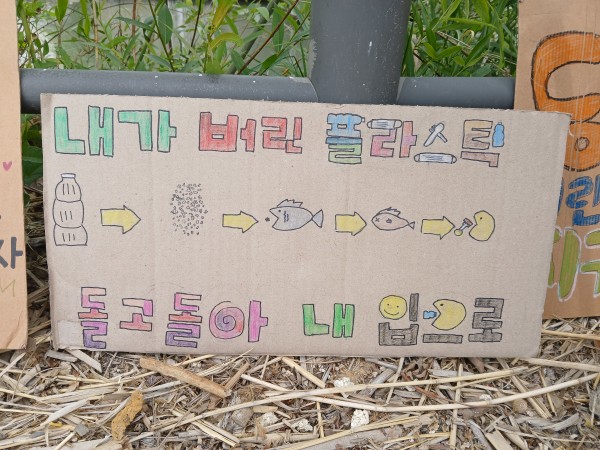 내가 버린 플라스틱
돌고돌아 내 입으로
자